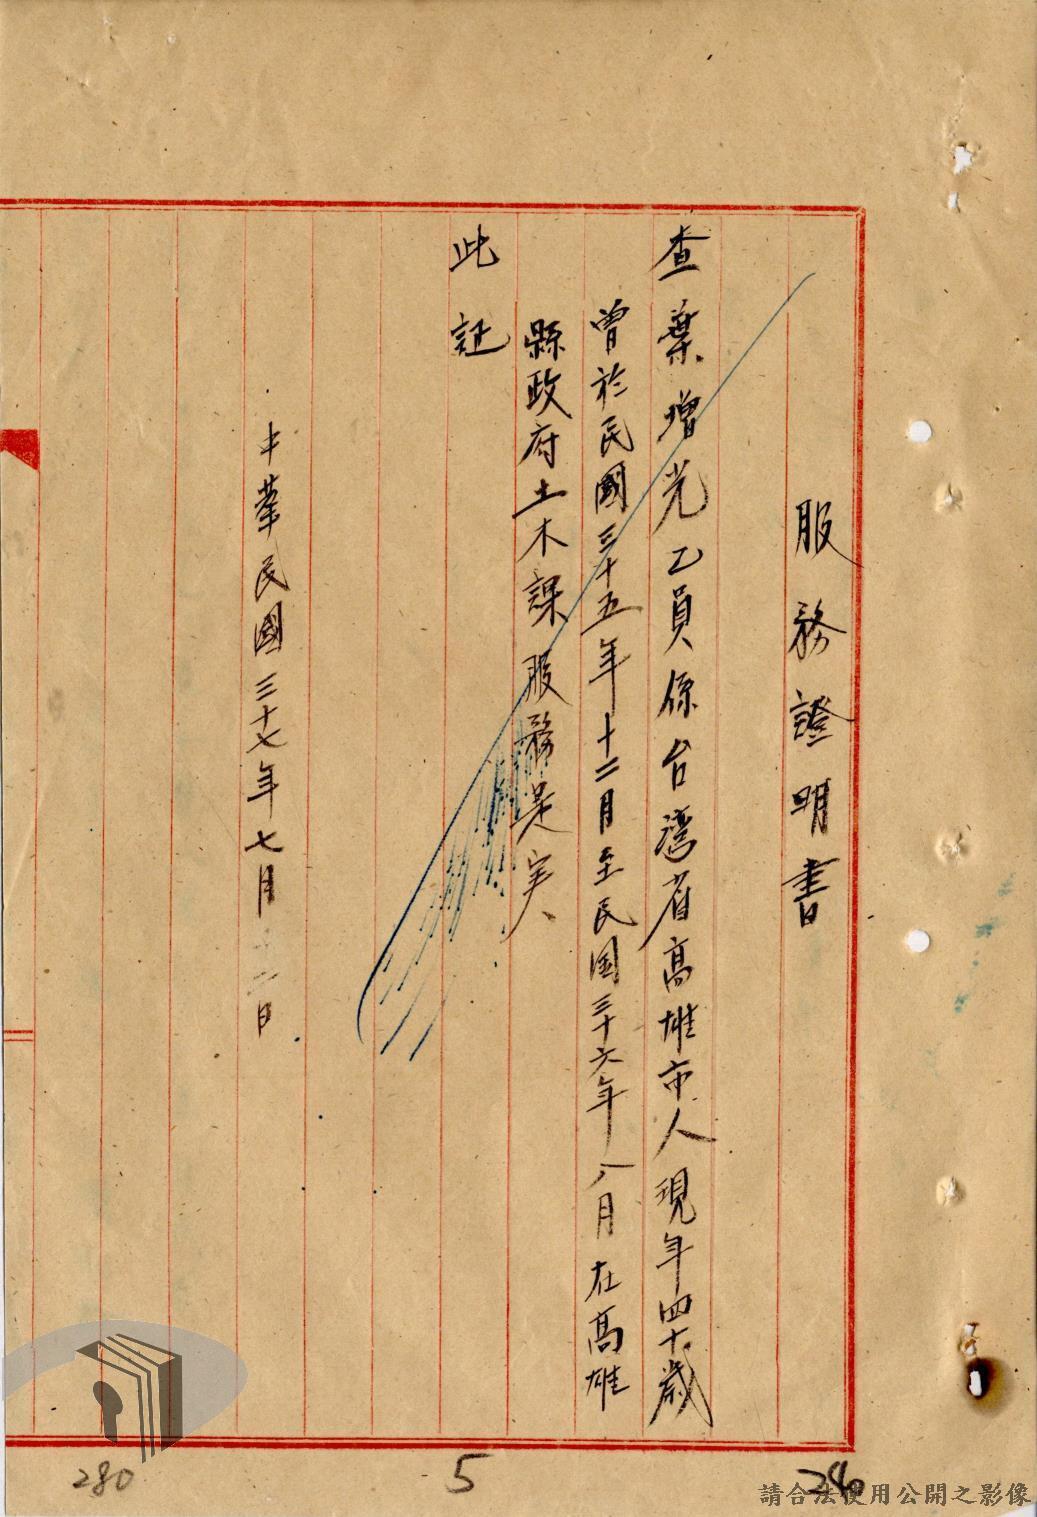 服務證明書
查葉增光乙員係台灣省高雄市人現年四十歲
曾於民國三十五年十二月至民国三十六年八月在高雄
縣政府土木課服務是実
此証
中華民國三十七年七月 二日
280
5
280
請合法使用公開之影像